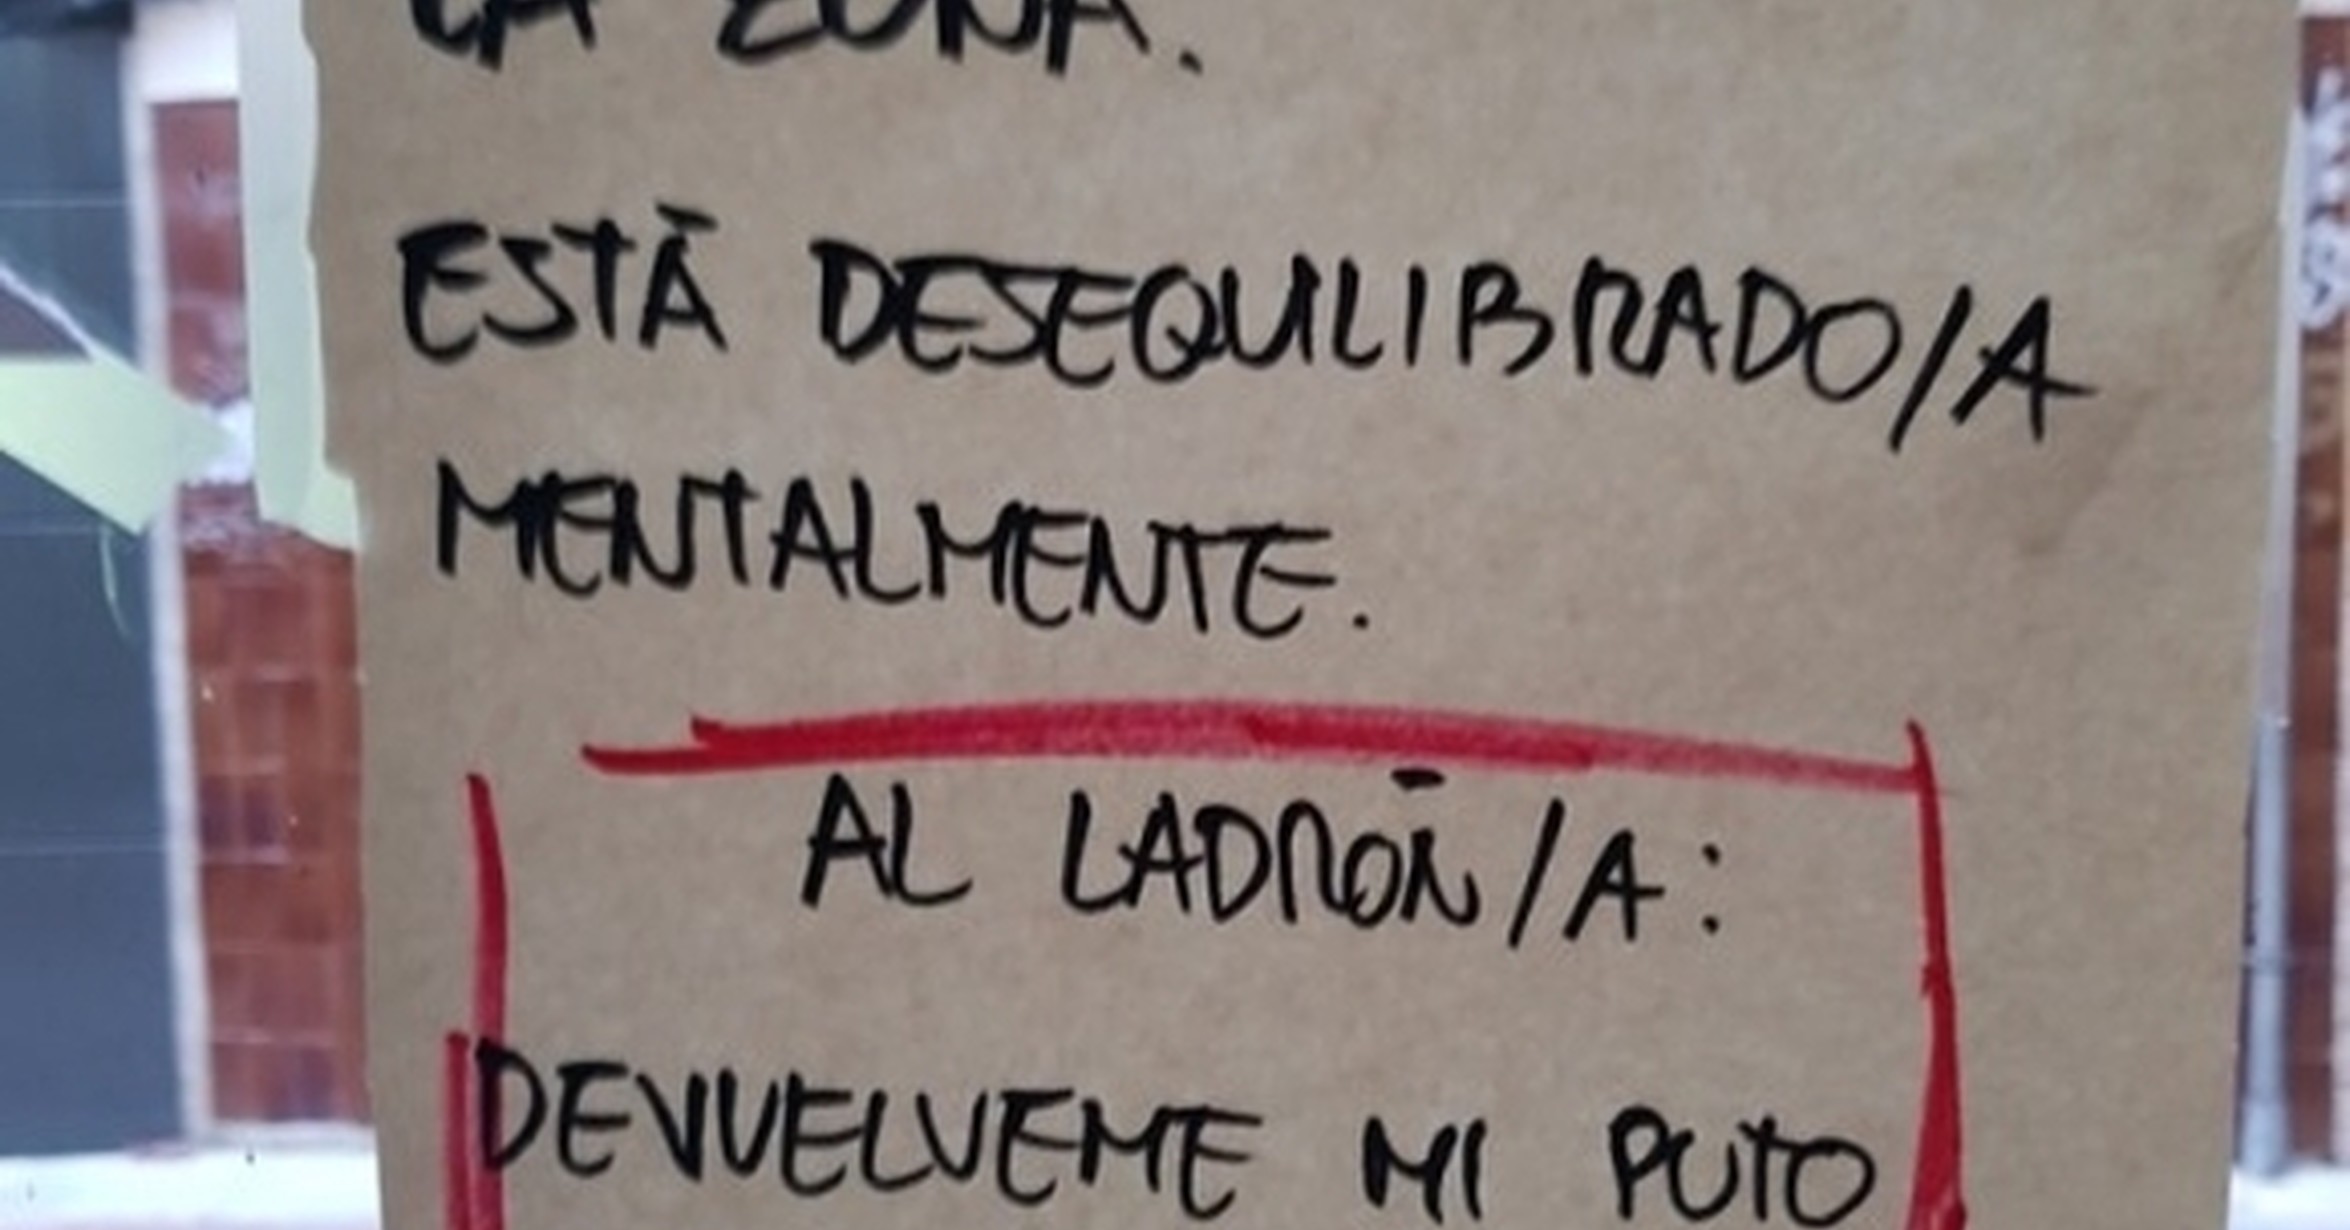 LA ZONA.
ESTÁ DESEQUILIBRADO/A
MENTALMENTE.
AL LADRÓN/A:
DEVUELVEME MI PUTO